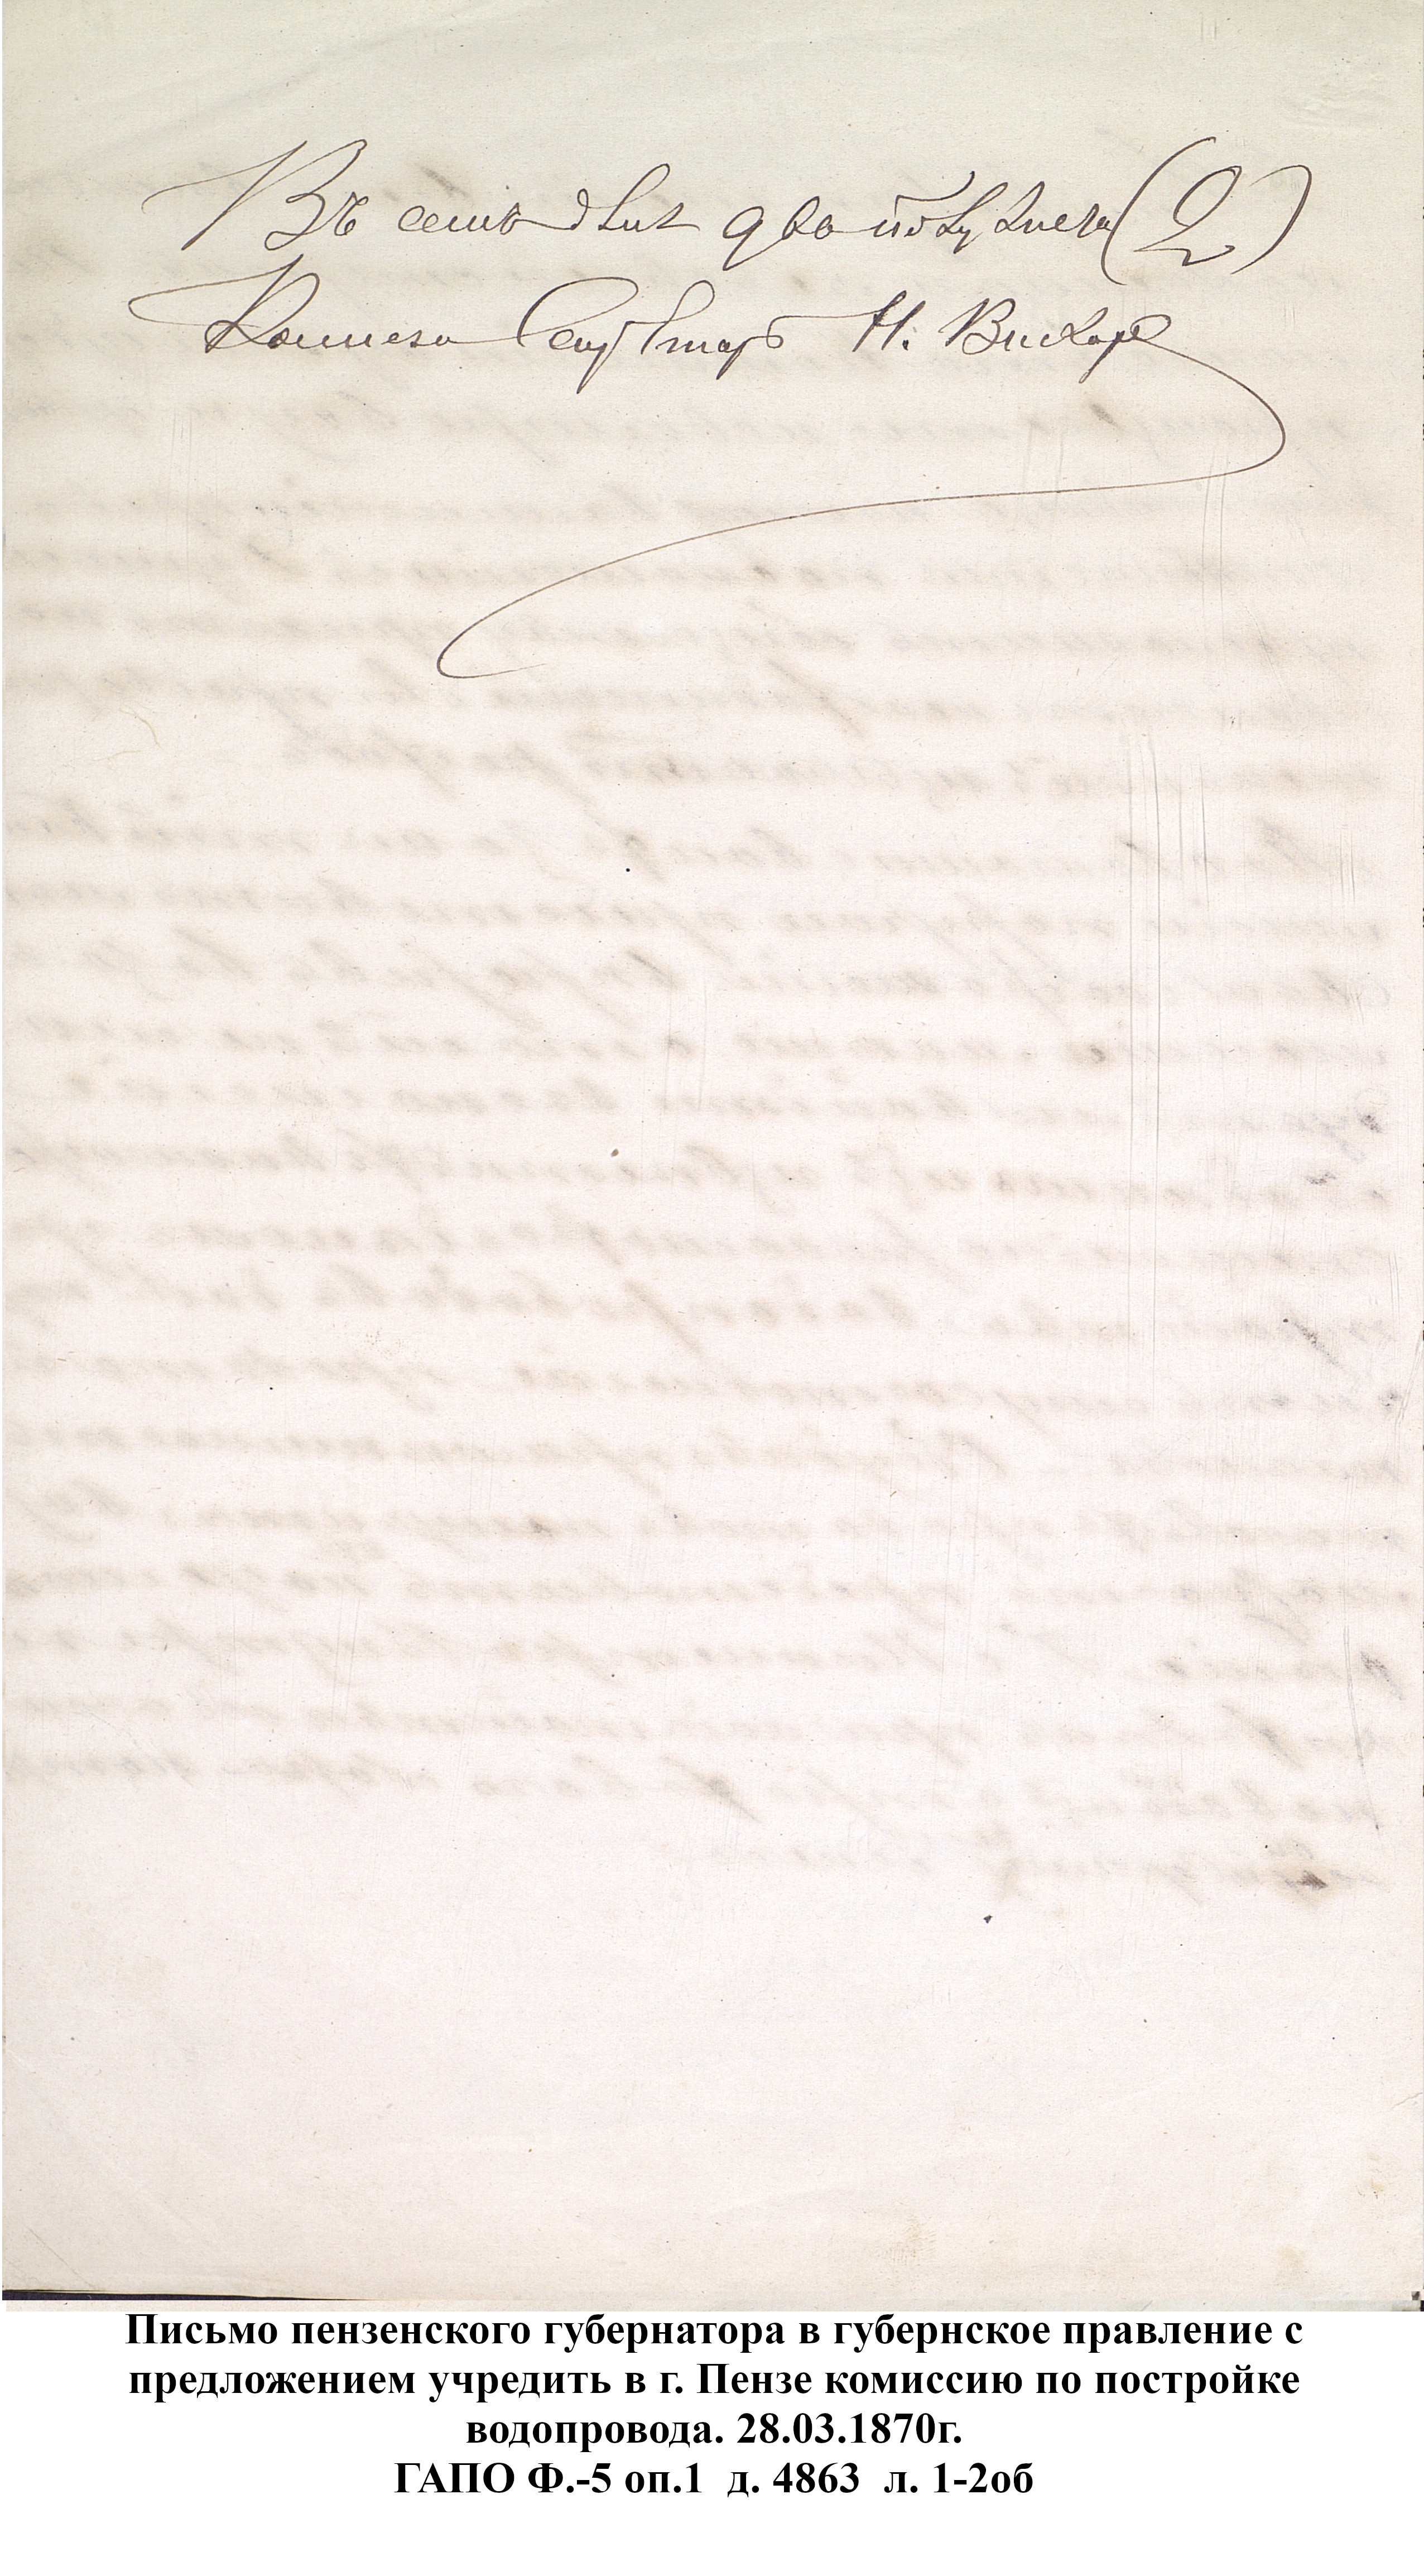 Въ семъ дѣлѣ два полулиста (2)
Коллеж. Секретарь Н.
Письмо пензенского губернатора в губернское правление с
предложением учредить в г. Пензе комиссию по постройке
водопровода. 28.03.1870г.
ГАПО Ф.-5 оп.1 д. 4863 л. 1-2об